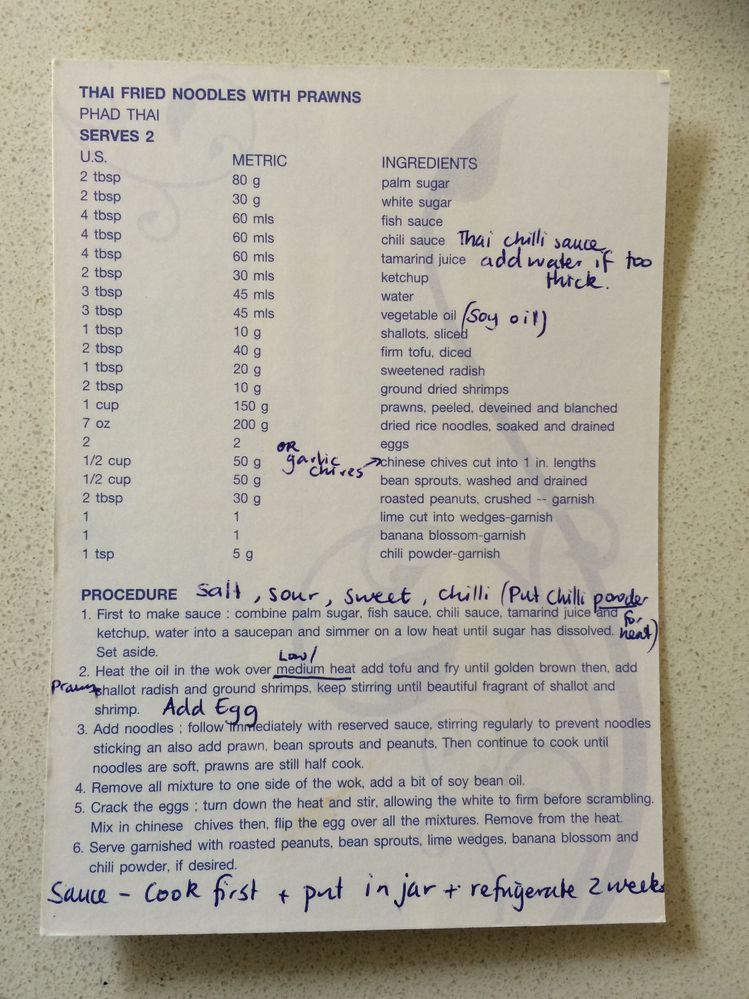 THAI FRIED NOODLES WITH PRAWNS
PHAD THAI
SERVES 2
U.S. METRIC INGREDIENTS
2 tbsp 80 g palm sugar
2 tbsp 30 g white sugar
4 tbsp 60 mls fish sauce
4 tbsp 60 mls chili sauce Thai chilli sauce
4 tbsp 60 mls tamarind juice add water if too thick.
2 tbsp 30 mls ketchup
3 tbsp 45 mls water
3 tbsp 45 mls vegetable oil (Soy oil)
1 tbsp 10 g shallots, sliced
2 tbsp 40 g firm tofu, diced
1 tbsp 20 g sweetened radish
2 tbsp 10 g ground dried shrimps
1 cup 150 g prawns, peeled, deveined and blanched
7 oz 200 g dried rice noodles, soaked and drained
2 2 eggs
1/2 cup 50 g OR garlic chives chinese chives cut into 1 in. lengths
1/2 cup 50 g bean sprouts, washed and drained
2 tbsp 30 g roasted peanuts, crushed -- garnish
1 1 lime cut into wedges-garnish
1 1 banana blossom-garnish
1 tsp 5 g chili powder-garnish
PROCEDURE Salt, sour, sweet, chilli (Put chilli powder for heat)
1. First to make sauce : combine palm sugar, fish sauce, chili sauce, tamarind juice and
ketchup, water into a saucepan and simmer on a low heat until sugar has dissolved.
Set aside.
Low/
2. Heat the oil in the wok over medium heat add tofu and fry until golden brown then, add
Prawns shallot radish and ground shrimps, keep stirring until beautiful fragrant of shallot and
shrimp. Add Egg
3. Add noodles ; follow immediately with reserved sauce, stirring regularly to prevent noodles
sticking an also add prawn, bean sprouts and peanuts, Then continue to cook until
noodles are soft, prawns are still half cook.
4. Remove all mixture to one side of the wok, add a bit of soy bean oil.
5. Crack the eggs ; turn down the heat and stir, allowing the white to firm before scrambling.
Mix in chinese chives then, flip the egg over all the mixtures. Remove from the heat.
6. Serve garnished with roasted peanuts, bean sprouts, lime wedges, banana blossom and
chili powder, if desired.
Sauce - Cook first + put in jar + refrigerate 2 weeks